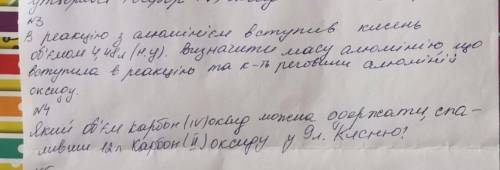 №3
В реакцію з алюмінієм вступив кисень
об'ємом 4,48л (н.у). Визначити масу алюмінію, що
вступила в реакцію та к-ть речовини алюміній
оксиду.
№4
Який об'єм карбон (IV) оксид можна одержати, спа-
ливши 12л Карбон (II) оксиду у 9л. Кисню?